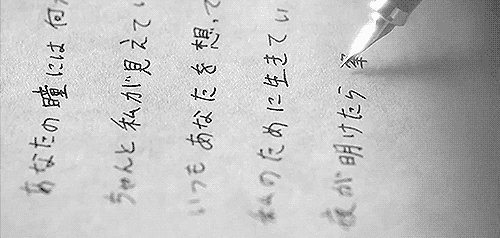 あなたの瞳には 何
ちゃんと私が見えてい
いつも あなたを 想って
私のために生きてい
夜が明けたら